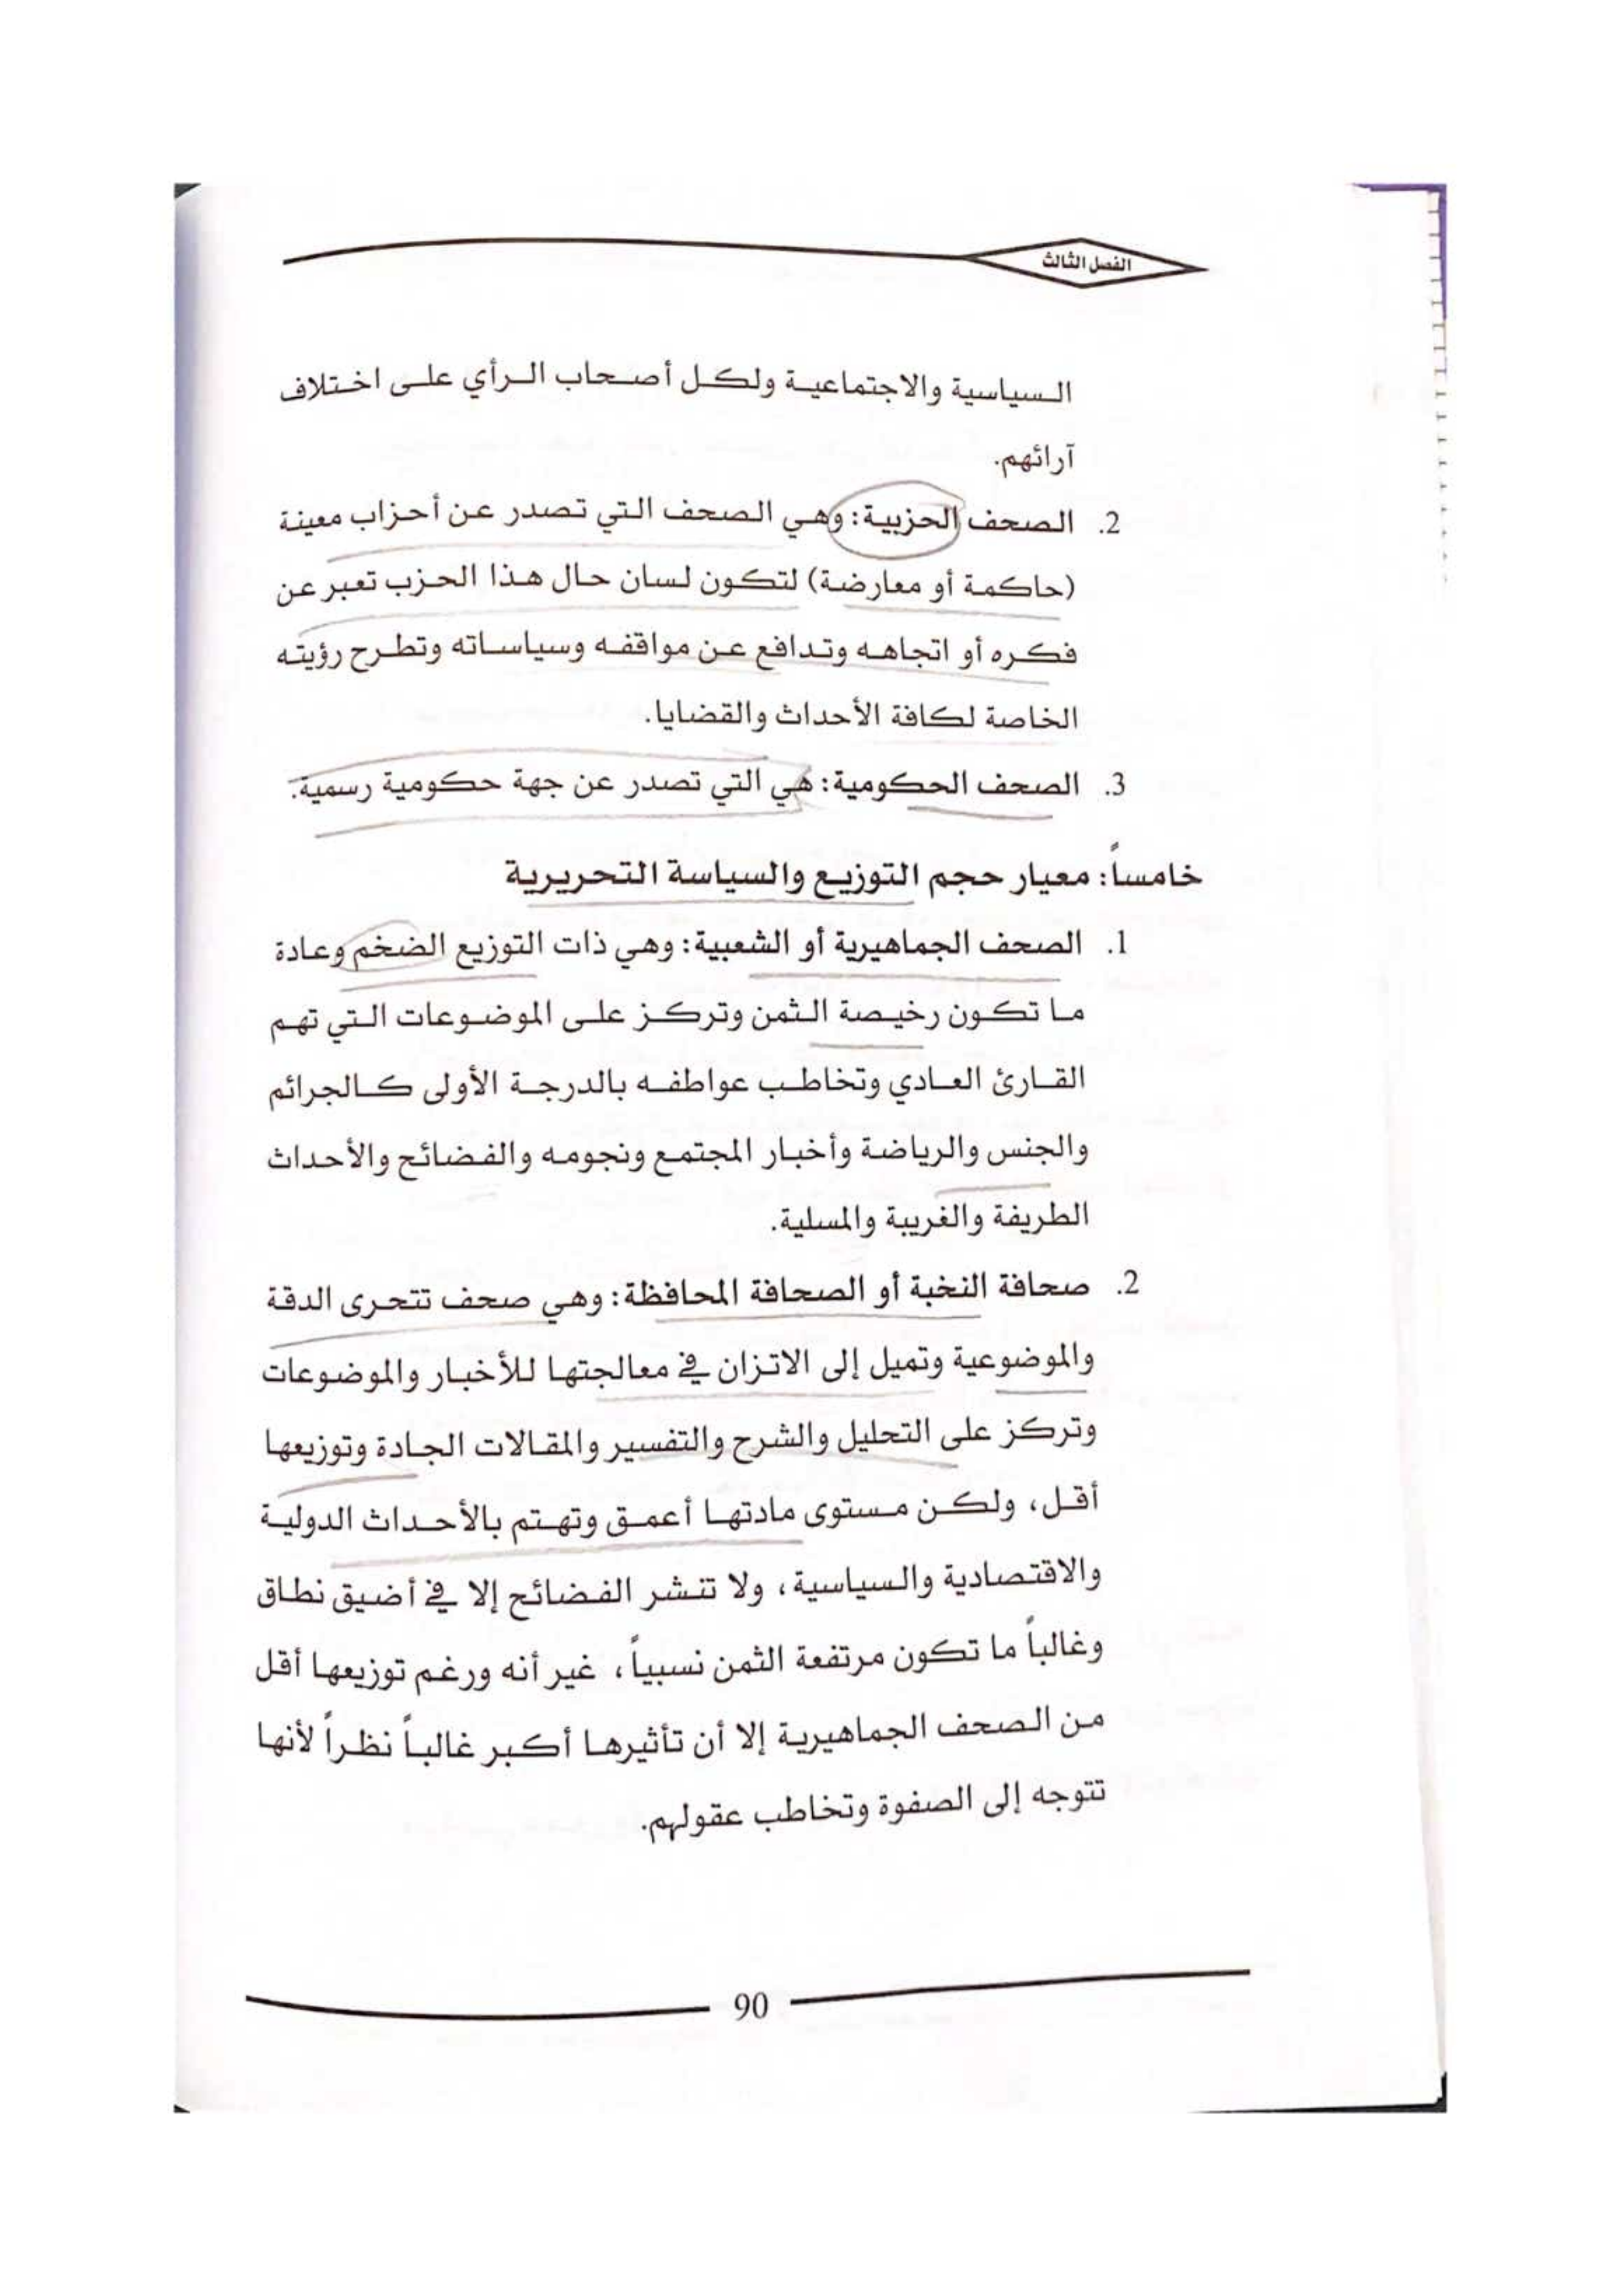 الفصل الثالث
السياسية والاجتماعية ولكل أصحاب الرأي على اختلاف
آرائهم.
2. الصحف الحزبية: وهي الصحف التي تصدر عن أحزاب معينة
(حاكمة أو معارضة) لتكون لسان حال هذا الحزب تعبر عن
فكره أو اتجاهه وتدافع عن مواقفه وسياساته وتطرح رؤيته
الخاصة لكافة الأحداث والقضايا.
3. الصحف الحكومية: هي التي تصدر عن جهة حكومية رسمية.
خامساً: معيار حجم التوزيع والسياسة التحريرية
1. الصحف الجماهيرية أو الشعبية: وهي ذات التوزيع الضخم وعادة
ما تكون رخيصة الثمن وتركز على الموضوعات التي تهم
القارئ العادي وتخاطب عواطفه بالدرجة الأولى كالجرائم
والجنس والرياضة وأخبار المجتمع ونجومه والفضائح والأحداث
الطريفة والغريبة والمسلية.
2. صحافة النخبة أو الصحافة المحافظة: وهي صحف تتحرى الدقة
والموضوعية وتميل إلى الاتزان في معالجتها للأخبار والموضوعات
وتركز على التحليل والشرح والتفسير والمقالات الجادة وتوزيعها
أقل، ولكن مستوى مادتها أعمق وتهتم بالأحداث الدولية
والاقتصادية والسياسية، ولا تنشر الفضائح إلا في أضيق نطاق
وغالباً ما تكون مرتفعة الثمن نسبياً، غير أنه ورغم توزيعها أقل
من الصحف الجماهيرية إلا أن تأثيرها أكبر غالباً نظراً لأنها
تتوجه إلى الصفوة وتخاطب عقولهم.
90